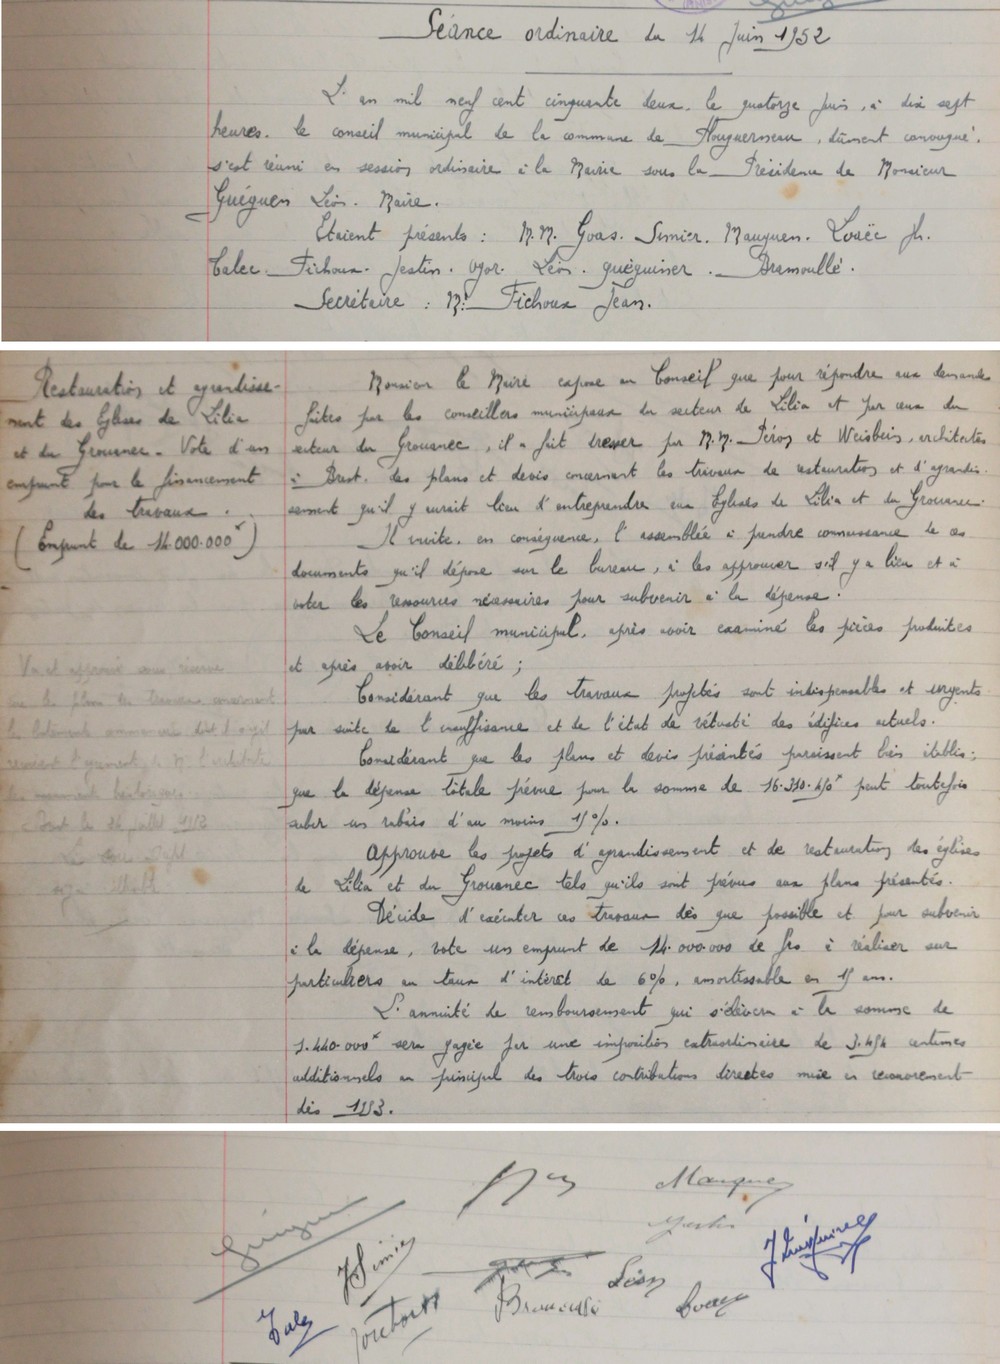 Séance ordinaire du 14 Juin 1952
L'an mil neuf cent cinquante deux, le quatorze juin, à dix sept
heures, le conseil municipal de la commune de Plouguerneau, dûment convoqué,
s'est réuni en session ordinaire à la Mairie sous la Présidence de Monsieur
Guéguen Léon. Maire.
Etaient présents : M.M. Goas. Simier. Manguen. Loaëc Jh.
Calec. Fichoux. Jestin. Ogor. Léon. Guéguiner. Bramoullé.
Secrétaire : Mr Fichoux Jean.
Restauration et agrandisse-
ment des Eglises de Lilia
et du Grouanec - Vote d'un
emprunt pour le financement
des travaux.
(Emprunt de 14.000.000 f)
Monsieur le Maire expose au Conseil que pour répondre aux demandes
faites par les conseillers municipaux du secteur de Lilia et par ceux du
secteur du Grouanec, il a fait dresser par M.M. Péron et Weisbein, architectes
à Brest, des plans et devis concernant les travaux de restauration et d'agrandis-
sement qu'il y aurait lieu d'entreprendre aux Eglises de Lilia et du Grouanec.
Il invite, en conséquence, l'assemblée à prendre connaissance de ces
documents qu'il dépose sur le bureau, à les approuver s'il y a lieu et à
voter les ressources nécessaires pour subvenir à la dépense.
Le Conseil municipal, après avoir examiné les pièces produites
et après avoir délibéré ;
Considérant que les travaux projetés sont indispensables et urgents
par suite de l'insuffisance et de l'état de vétusté des édifices actuels.
Considérant que les plans et devis présentés paraissent bien établis ;
que la dépense totale prévue pour la somme de 16.310.450 f peut toutefois
subir un rabais d'au moins 15%.
Approuve les projets d'agrandissement et de restauration des églises
de Lilia et du Grouanec tels qu'ils sont prévus aux plans présentés.
Décide d'exécuter ces travaux dès que possible et pour subvenir
à la dépense, vote un emprunt de 14.000.000 de frs à réaliser sur
particuliers au taux d'intérêt de 6%, amortissable en 15 ans.
L'annuité de remboursement qui s'élèvera à la somme de
1.440.000 f sera gagée par une imposition extraordinaire de 3.454 centimes
additionnels au principal des trois contributions directes mise en recouvrement
dès 1953.
Vu et approuvé sous réserve
Brest le 24 juillet 1952
Le Sous Préfet
Guéguen
Manguen
Jestin
J Simier
J Guéguiner
Léon
Bramoullé
Loaëc
Calec